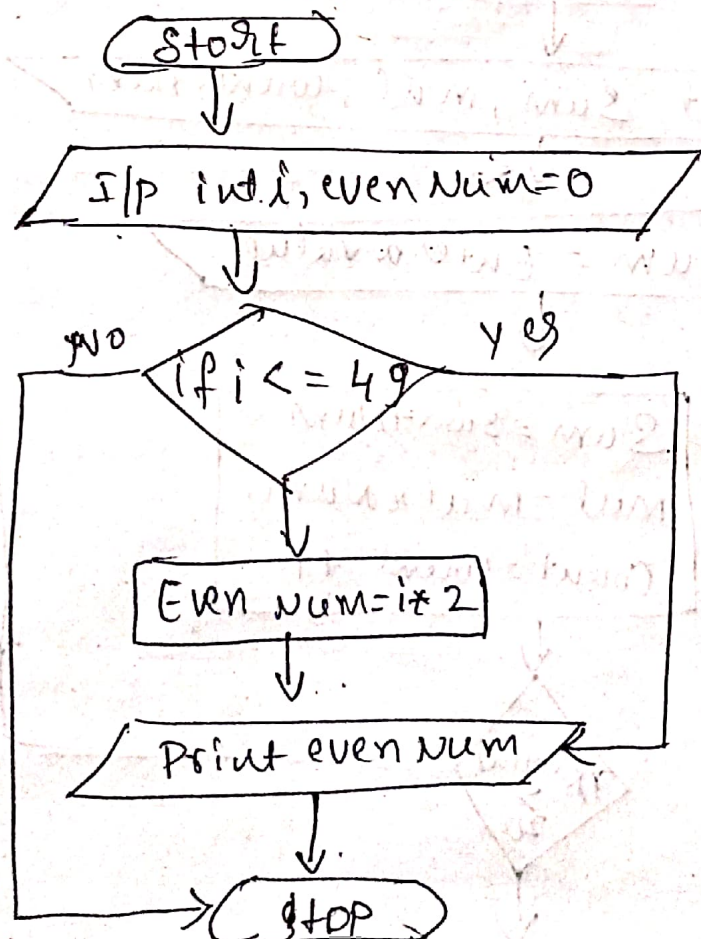 Start
I/p int i, even Num=0
No
if i <= 49
yes
Even Num=i* 2
Print even Num
Stop